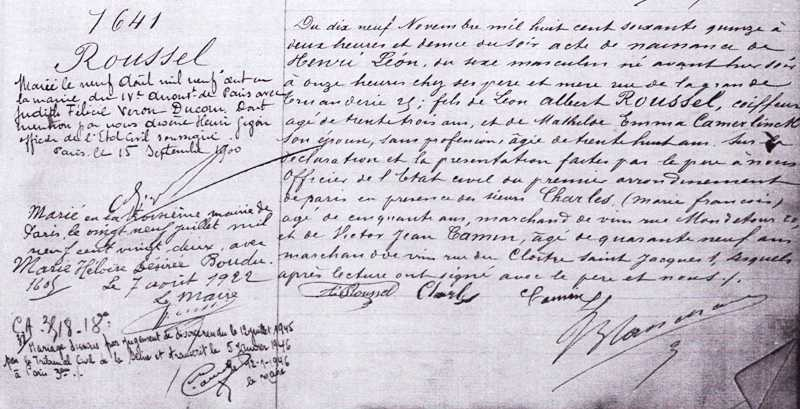 1641
Roussel
Marié le neuf août mil neuf cent en
la mairie du IVe arront de Paris avec
Judith Félicie Veron Ducom. Dont
mention par nous
officier de l'Etat Civil soussigné
Paris le 15 Septembre 1900
Marié en la troisième mairie de
Paris le vingt neuf juillet mil
neuf cent vingt deux, avec
Marie Héloïse Désirée Boudu.
le 7 août 1922
Le Maire
Mariage dissous par jugement de divorce rendu le 12 juillet 1945
par le Tribunal Civil de la Seine et transcrit le 5 Janvier 1946
à Paris 3me
le Maire
Du dix neuf Novembre mil huit cent soixante quinze à
deux heures et demie du soir acte de naissance de
Henri Léon, du sexe masculin né avant hier soir
à onze heures chez ses père et mère rue de la grande
Truanderie 25; fils de Léon Albert Roussel, coiffeur
agé de trente trois ans, et de Mathilde Emma Camerlinck
son épouse, sans profession, agée de trente huit ans. Sur la
déclaration et la présentation faites par le père à nous
Officier de l'Etat civil du premier arrondissement
de paris en présence des sieurs Charles, (marie francois)
agé de cinquante ans, marchand de vin rue Mondetour
et de Victor Jean Camin, agé de quarante neuf ans
marchand de vin rue du Cloître Saint Jacques 1, lesquels
après lecture ont signé avec le père et nous.
Roussel Charles Camin